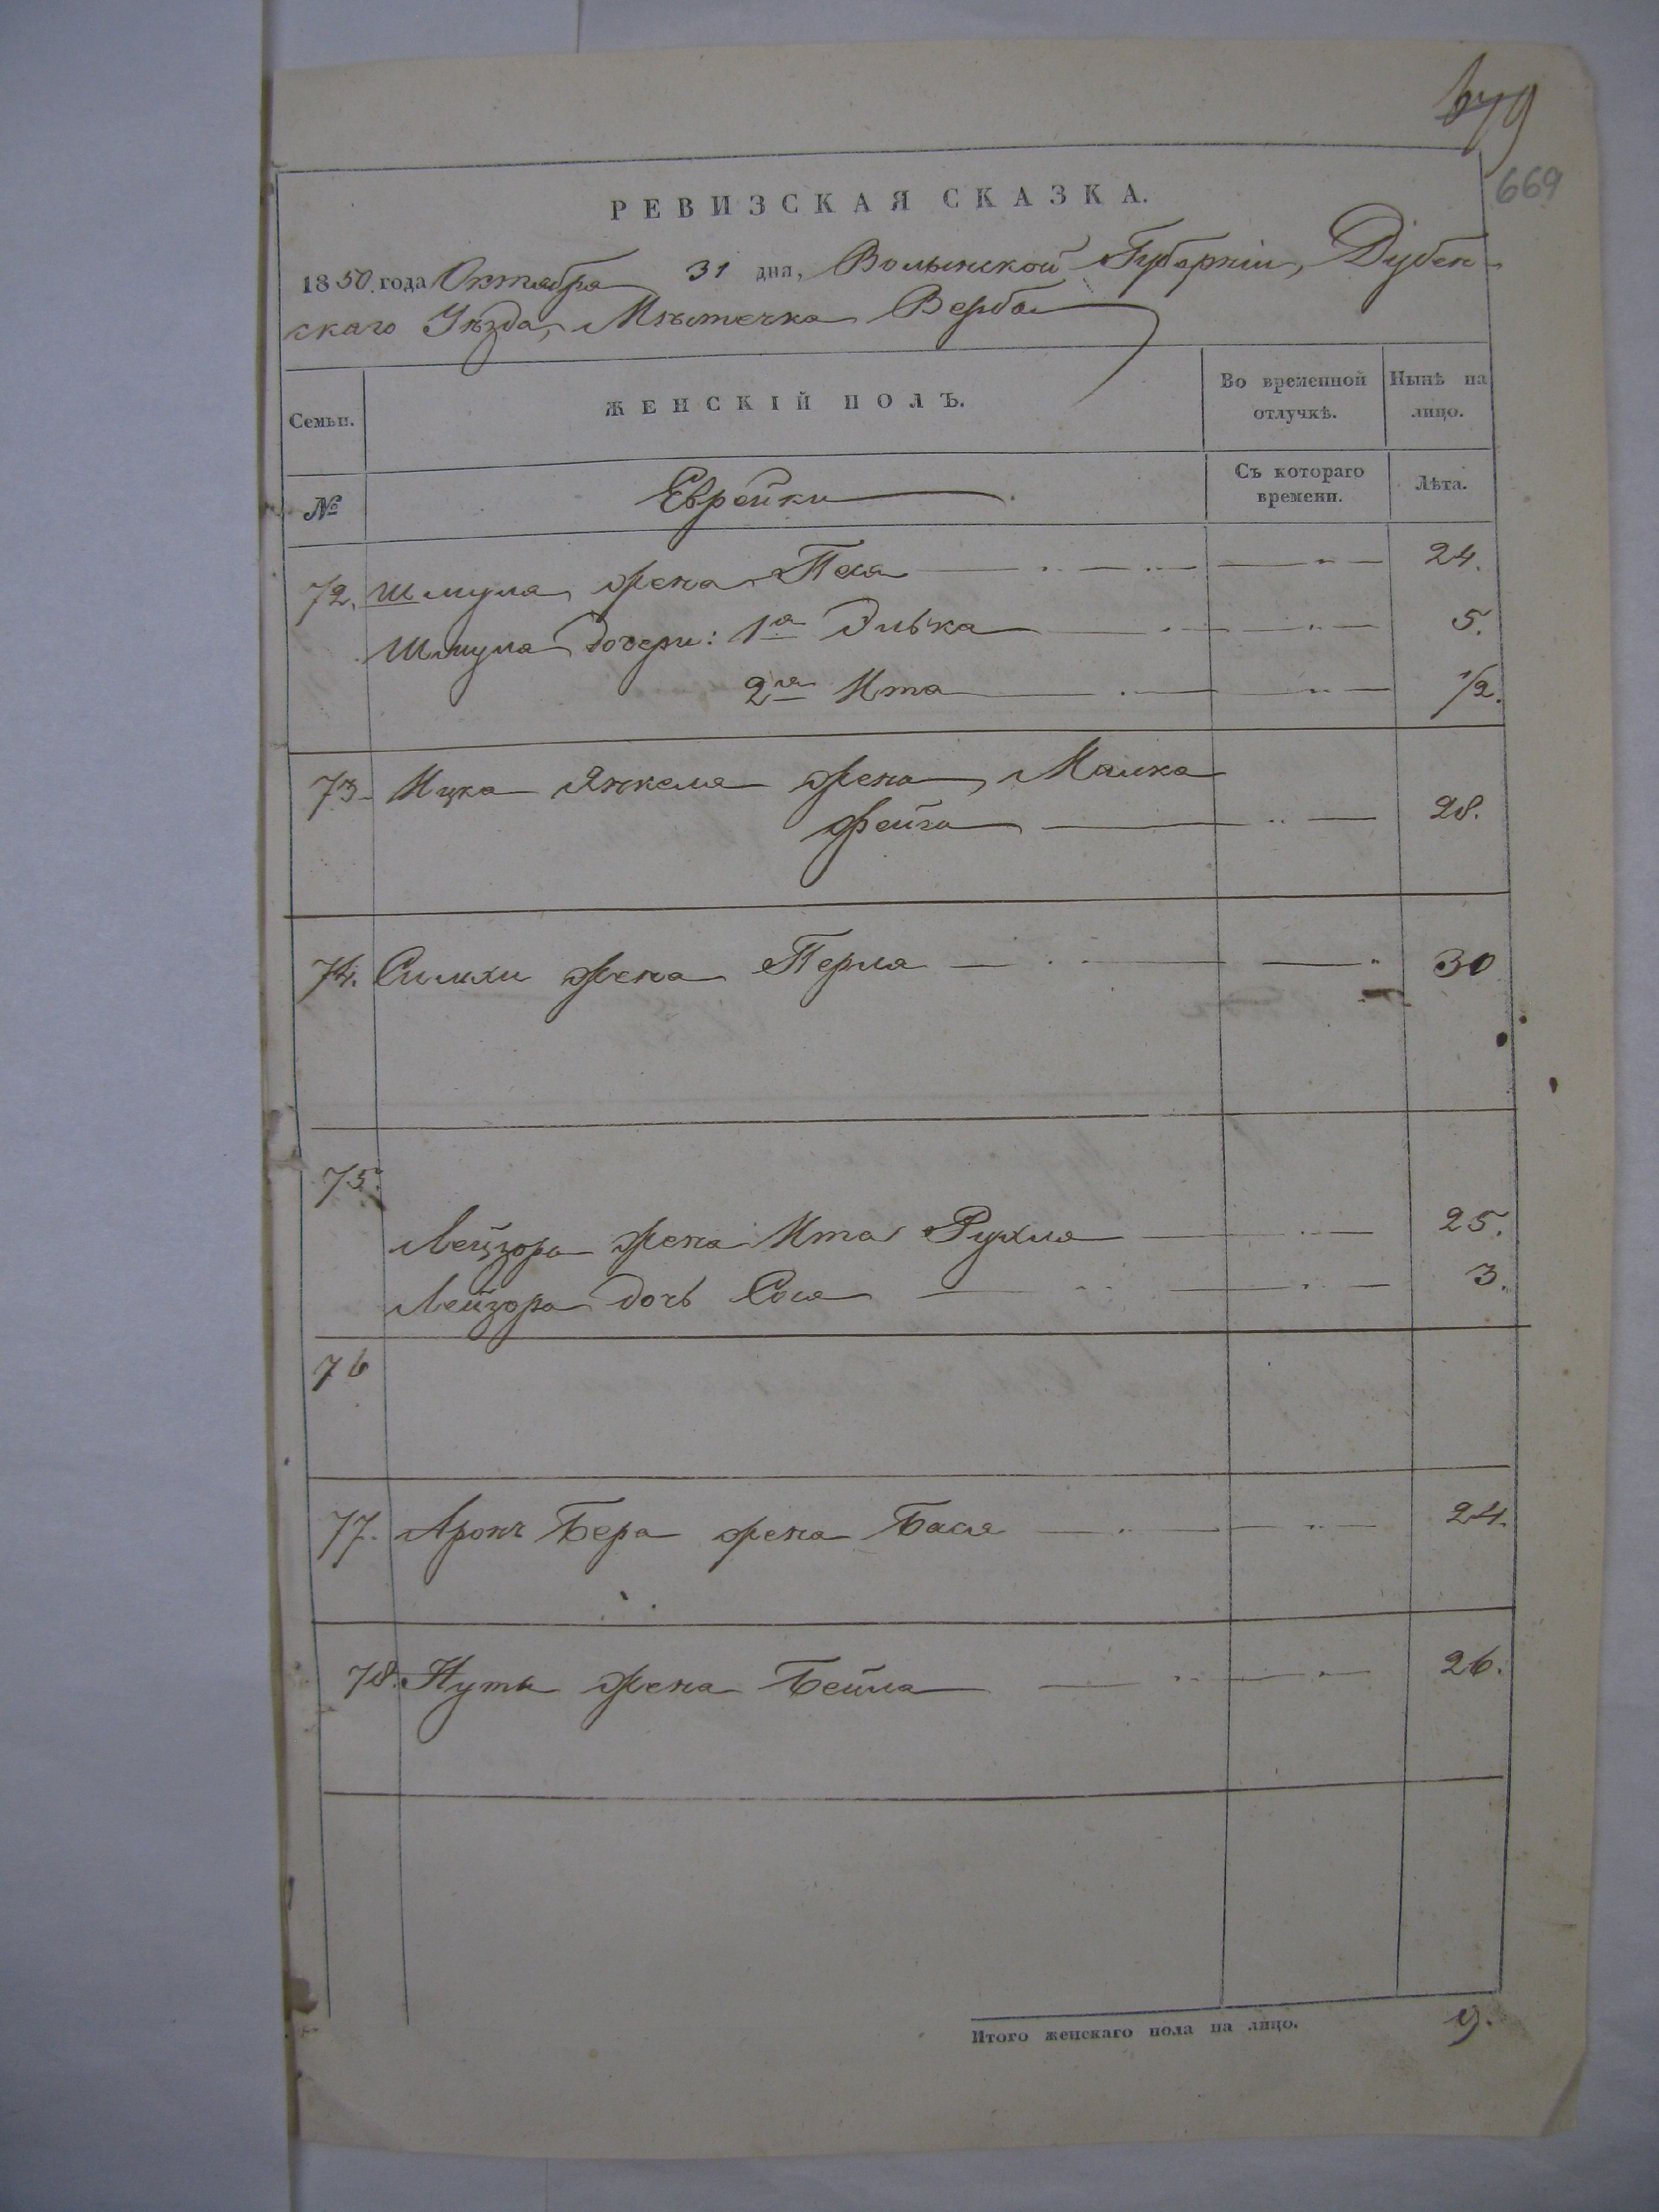 679
669
РЕВИЗСКАЯ СКАЗКА.
1850 года Октября 31 дня, Волынской Губернiи, Дубен-
скаго Уѣзда, Мѣстечка Верба
Семьи.
ЖЕНСКIЙ ПОЛЪ.
Во временной отлучкѣ.
Нынѣ на лицо.
№
Еврейки
Съ котораго времени.
Лѣта.
72. Шмуля жена Песя 24.
Шмуля дочери: 1я Элька 5.
2я Ита 1/2.
73. Ицка Янкеля жена Малка
Фейга 28.
74. Симхи жена Перля 30
75.
Лейзора жена Ита Рухля 25.
Лейзора дочь Сося 3.
76
77. Аронъ Бера жена Бася 24.
78. Нуты жена Бейла 26.
Итого женскаго пола на лицо. 9.